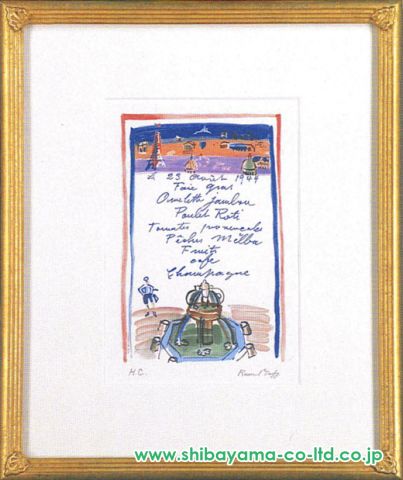 le 23 Août 1944
Foie gras
Omelette jambon
Poulet Roti
Tomates provencales
Pêches Melba
Fruits
cafe
Champagne
H.C. Raoul Dufy
www.shibayama-co-ltd.co.jp